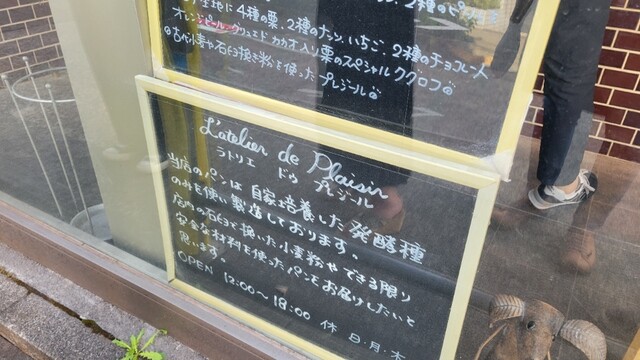 生地に4種の栗、2種のナッツ、いちご、2種のチョコレート
オレンジピール カカオ入り栗のスペシャルクグロフ
古代小麦や石臼挽き粉を使ったプレジール
L'atelier de Plaisir
ラトリエ ドゥ プレジール
当店のパンは自家培養した発酵種
のみを使い製造しております。
店内の石臼で挽いた小麦粉やできる限り
安全な材料を使ったパンをお届けしたいと
思います。
OPEN 12:00〜18:00 休 日.月.木